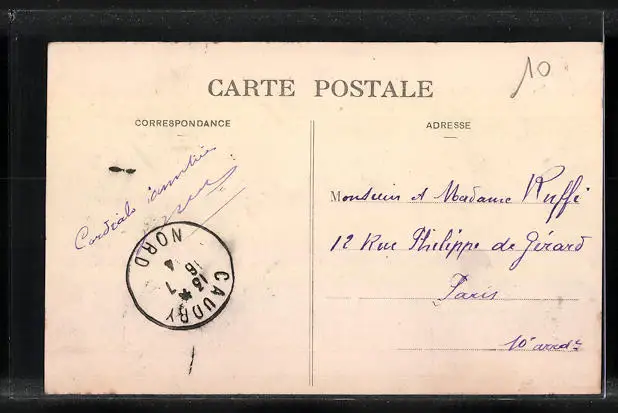 10
CARTE POSTALE
CORRESPONDANCE
ADRESSE
Cordiale
Monsieur et Madame Ruffi
12 Rue Philippe de Girard
Paris
10e arrdt
CAUDRY
NORD